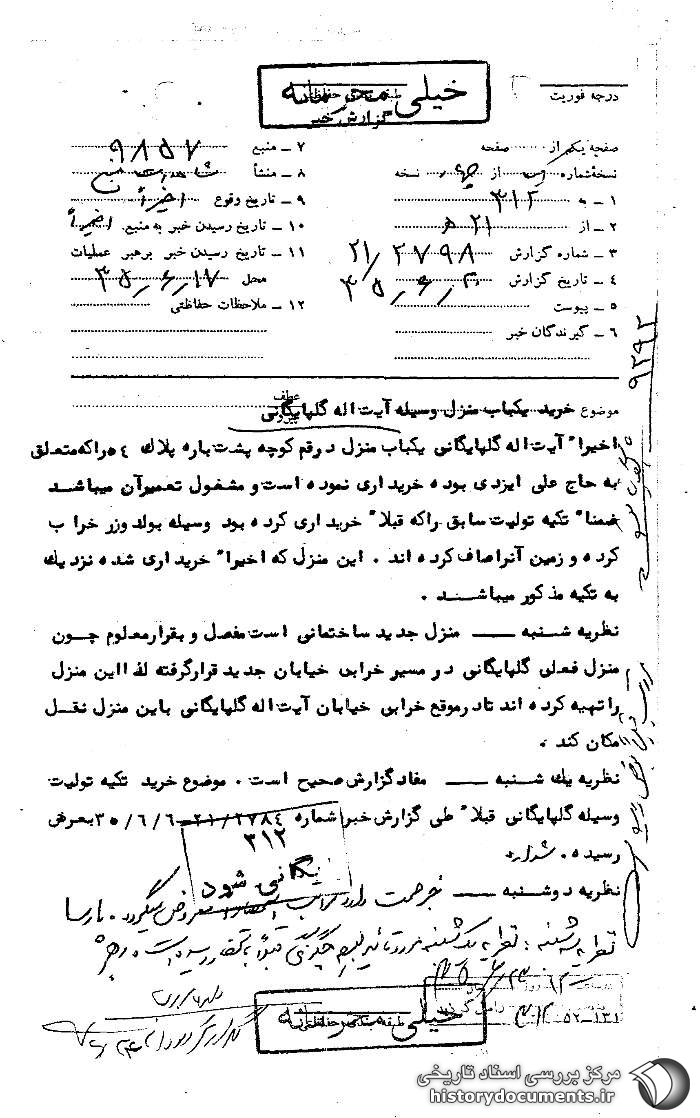 خیلی محرمانه
گزارش خبر
درجه فوریت
صفحه یکم از صفحه
نسخهٔ شماره از نسخه
۱ ـ به ۳۱۲
۲ ـ از ۲۱ ه
۳ ـ شماره گزارش ۲۱/۲۷۹۸
۴ ـ تاریخ گزارش
۵ ـ پیوست
۶ ـ گیرندگان خبر
۷ ـ منبع ۹۸۵۷
۸ ـ منشأ
۹ ـ تاریخ وقوع اخیراً
۱۰ ـ تاریخ رسیدن خبر به منبع اخیراً
۱۱ ـ تاریخ رسیدن خبر برهبر عملیات
محل ۳۵٫۶٫۱۷
۱۲ ـ ملاحظات حفاظتی
۹۲۹۲
عطف
پیرو
موضوع خرید یکباب منزل وسیله آیت اله گلپایگانی
اخیرا" آیت اله گلپایگانی یکباب منزل در قم کوچه پشت باره پلاك ۵۴ راکه متعلق
به حاج علی ایزدی بوده خریداری نموده است و مشغول تعمیرآن میباشد
ضمنا" تکیه تولیت سابق راکه قبلا" خریداری کرده بود وسیله بولدوزر خراب
کرده و زمین آنراصاف کرده اند . این منزل که اخیرا" خریداری شده نزدیك
به تکیه مذکور میباشد .
نظریه شنبه ــ منزل جدید ساختمانی است مفصل و بقرارمعلوم چون
منزل فعلی گلپایگانی در مسیر خرابی خیابان جدید قرارگرفته لذا این منزل
را تهیه کرده اند تادرموقع خرابی خیابان آیت اله گلپایگانی باین منزل نقل
مکان کند .
نظریه یك شنبه ــ مفاد گزارش صحیح است . موضوع خرید تکیه تولیت
وسیله گلپایگانی قبلا" طی گزارش خبر شماره ۲۱/۲۷۸۴ - ۳۵/۶/۶ بعرض
رسیده .
۳۱۲
بایگانی شود
نظریه دوشنبه ــ
نظریه سه شنبه : نظریه یکشنبه مورد تائید
خیلی محرمانه
طبقه بندی حفاظتی
مرکز بررسی اسناد تاریخی
historydocuments.ir